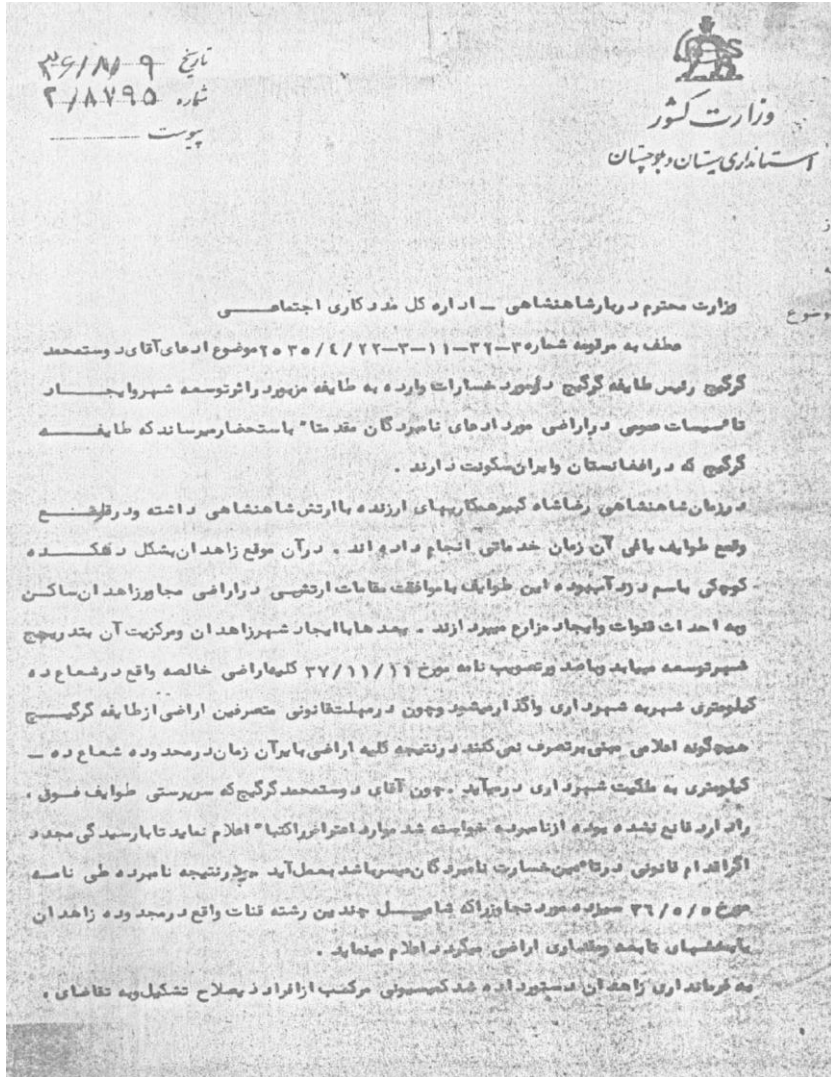 تاریخ ۳۶/۸/۹
شماره ۲/۸۷۹۵
پیوست
وزارت کشور
استانداری سیستان و بلوچستان
ز
ه
وضوع
وزارت محترم دربار شاهنشاهی ــ اداره کل مددکاری اجتماعــــی
عطف به مرقومه شماره ۳-۳۲-۱۱-۳-۲۵۳۵/٤/۲۲ موضوع ادعای آقای دوستمحمد
گرگیج رئیس طایفه گرگیج در مورد خسارات وارده به طایفه مزبور در اثر توسعه شهر و ایجـــاد
تاسیسات عمومی در اراضی مورد ادعای نامبردگان مقدمتا" باستحضار میرساند که طایفـــه
گرگیج که در افغانستان و ایران سکونت دارند .
در زمان شاهنشاهی رضاشاه کبیر همکاریهای ارزنده با ارتش شاهنشاهی داشته و در قلـــع
وقمع طوایف یاغی آن زمان خدماتی انجام داده اند . در آن موقع زاهدان بشکل دهکـــده
کوچکی باسم دزدآب بوده این طوایف با موافقت مقامات ارتشی در اراضی مجاور زاهدان ساکن
و به احداث قنوات و ایجاد مزارع میپردازند . بعدها با ایجاد شهر زاهدان و مرکزیت آن بتدریج
شهر توسعه مییابد و با صدور تصویب نامه مورخ ۳۷/۱۱/۱۱ کلیه اراضی خالصه واقع در شعاع ده
کیلومتری شهر به شهرداری واگذار میشود و چون در مهلت قانونی متصرفین اراضی از طایفه گرگیـــج
هیچگونه اعلامی مبنی بر تصرف نمی کنند در نتیجه کلیه اراضی بایر آن زمان در محدوده شعاع ده ــ
کیلومتری به ملکیت شهرداری در میآید . چون آقای دوستمحمد گرگیج که سرپرستی طوایف فــوق .
را دارد قانع نشده بوده از نامبرده خواسته شد موارد اعتراض را کتبا" اعلام نماید تا با رسیدگی مجدد
اگر اقدام قانونی در تامین خسارت نامبردگان میسر باشد بعمل آید در نتیجه نامبرده طی نامـــه
مورخ ۳٦/٥/٥ سیزده مورد تجاوز را که شامـــل چندین رشته قنات واقع در محدوده زاهدان
یا بخشهای تابعه و مقداری اراضی میگردد اعلام مینماید .
به فرمانداری زاهدان دستور داده شد کمیسیونی مرکب از افراد ذیصلاح تشکیل و به تقاضای .